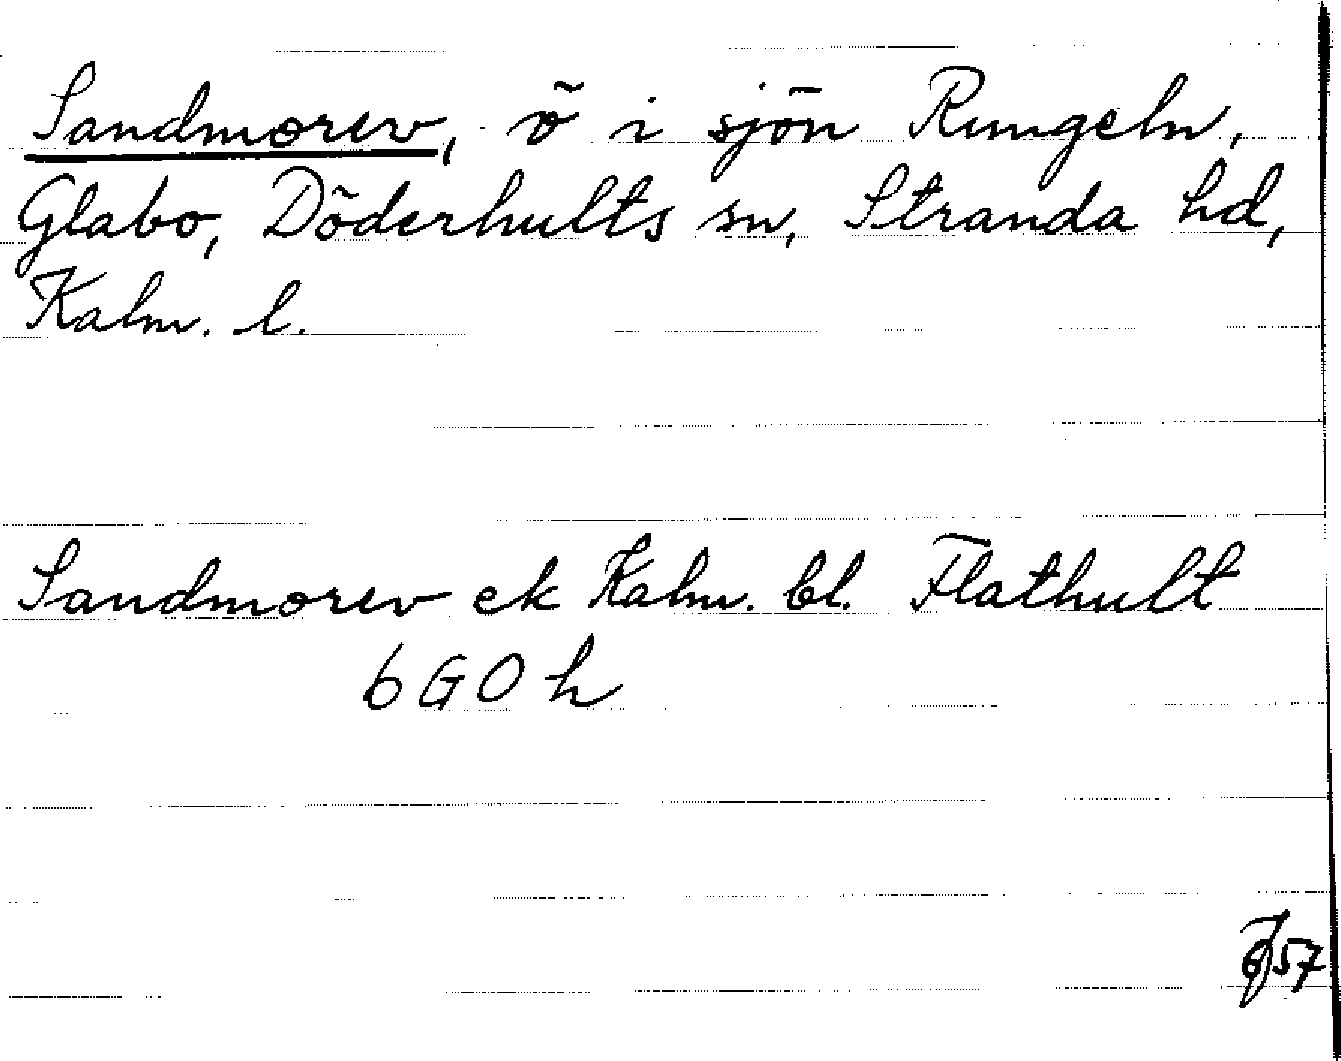 Sandmorev, ö i sjön Rungeln,
Glabo, Döderhults sn, Stranda hd,
Kalm. l.
Sandmorev ek Kalm. bl. Flathult
6 G O h
57